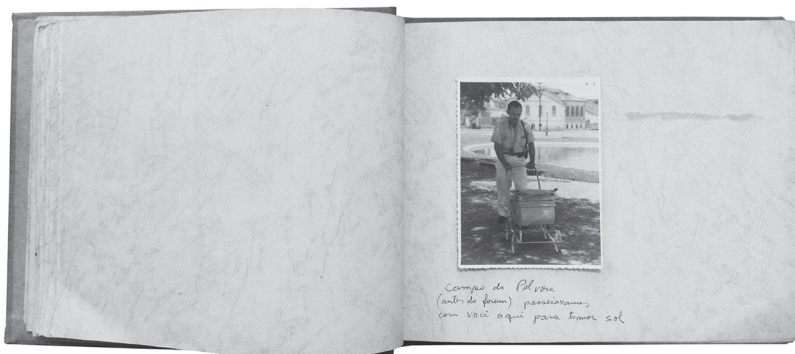 Campo da Pólvora
(antes do forum) passeiavamos
com você aqui para tomar sol